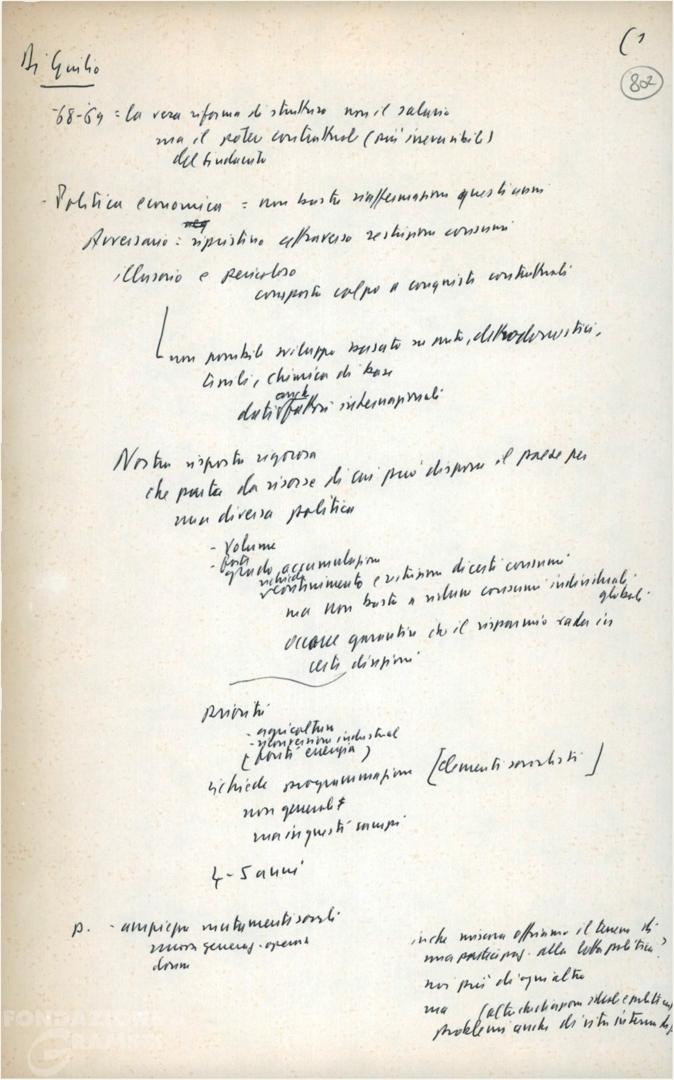 Di Giulio
802
-68-69 = la vera riforma di struttura non il salario
ma il poter contrattual (più irreversibile)
del sindacato
- Politica economica = non basta riaffermazioni questioni
Avversario = ripristino attraverso restrizioni consumi
illusorio e pericoloso
comporta colpo a conquiste contrattuali
non possibile sviluppo basato su auto, elettrodomestici,
tessili, chimica di base
dati anche fattori internazionali
Nostra risposta rigorosa
che parta da risorse di cui può disporre il paese per
una diversa politica
- volume
- forte grado accumulazione
richiede contenimento e restrizioni di certi consumi
ma non basta a ridurre consumi individuali globali
occorre garantire che il risparmio vada in
certe direzioni
Priorità
- agricoltura
- riconversione industrial
(fonti energia)
richiede programmazione [elementi socialisti]
non general
ma in questi campi
4-5 anni
P. - ampiezza mutamenti sociali
nuova generaz. operaia
donne
in che misura offriamo il terreno di
una partecipaz. alla lotta politica?
noi più di ogni altro
ma
problemi anche di vita interna
FONDAZIONE
GRAMSCI